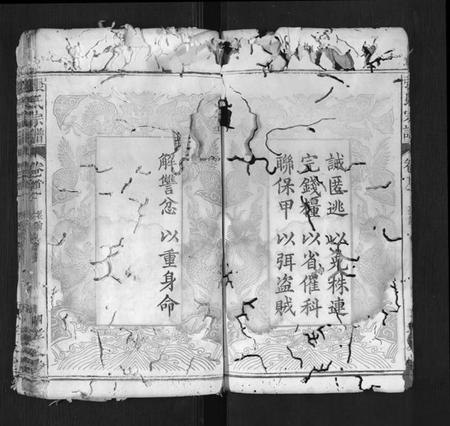 誡匿逃以免株連
完錢糧以省催科
聯保甲以弭盜賊
解讐忿以重身命
氏宗譜
卷首